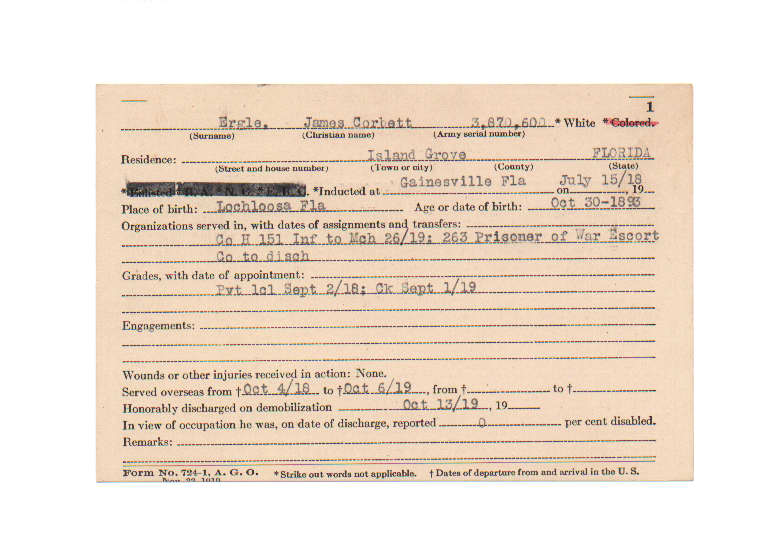 1
Ergle, James Corbett 3,870,600 * White * Colored.
(Surname) (Christian name) (Army serial number)
Residence: Island Grove FLORIDA
(Street and house number) (Town or city) (County) (State)
*Enlisted * R. A. * N. G. * E. R. C. *Inducted at Gainesville Fla on July 15/18, 19
Place of birth: Lochloosa Fla Age or date of birth: Oct 30-1893
Organizations served in, with dates of assignments and transfers:
Co H 151 Inf to Mch 26/19; 263 Prisoner of War Escort
Co to disch
Grades, with date of appointment:
Pvt 1cl Sept 2/18; Ck Sept 1/19
Engagements:
Wounds or other injuries received in action: None.
Served overseas from † Oct 4/18 to † Oct 6/19, from † to †
Honorably discharged on demobilization Oct 13/19, 19
In view of occupation he was, on date of discharge, reported 0 per cent disabled.
Remarks:
Form No. 724-1, A. G. O. * Strike out words not applicable. † Dates of departure from and arrival in the U. S.
Nov. 22, 1919